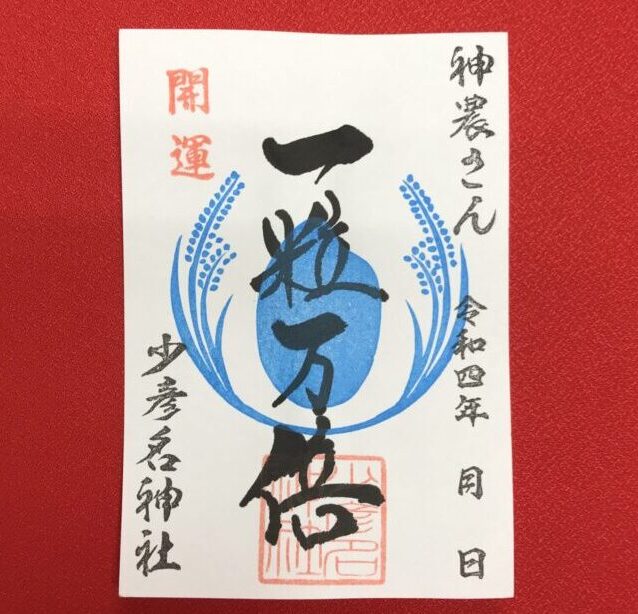 神農さん
令和四年 月 日
一粒万倍
開運
少彦名神社
少彦名神社